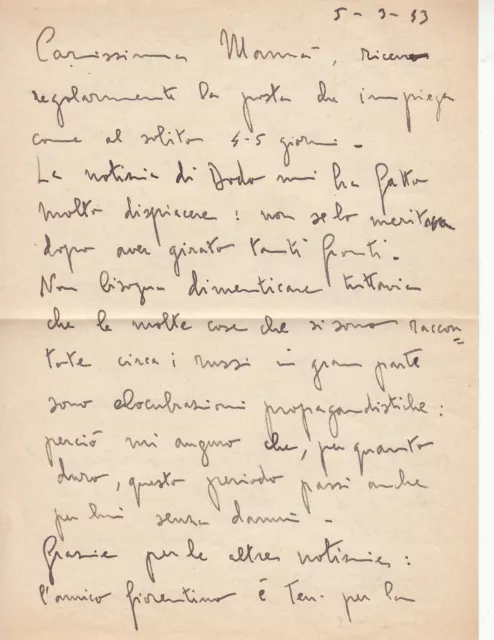 5-3-43
Carissima Mamma, ricevo
regolarmente la posta che impiega
come al solito 4-5 giorni -
La notizia di Dodo mi ha fatto
molto dispiacere: non se lo meritava
dopo aver girato tanti fronti.
Non bisogna dimenticare tuttavia
che le molte cose che si sono raccon=
tate circa i russi in gran parte
sono elocubrazioni propagandistiche:
perciò mi auguro che, per quanto
duro, questo periodo passi anche
per lui senza danni -
Grazie per le altre notizie:
l'amico fiorentino è Ten. per la